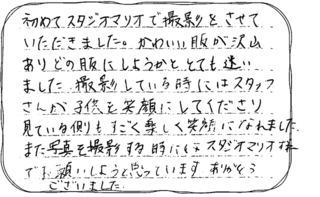 初めてスタジオマリオで撮影をさせて
いただきました。かわいい服が沢山
ありどの服にしようかととても迷い
ました 撮影している時にはスタッフ
さんが子供を笑顔にしてくださり
見ている側もすごく楽しく笑顔になれました
また写真を撮影する時にはスタジオマリオ様
でお願いしようと思っています ありがとう
ございました